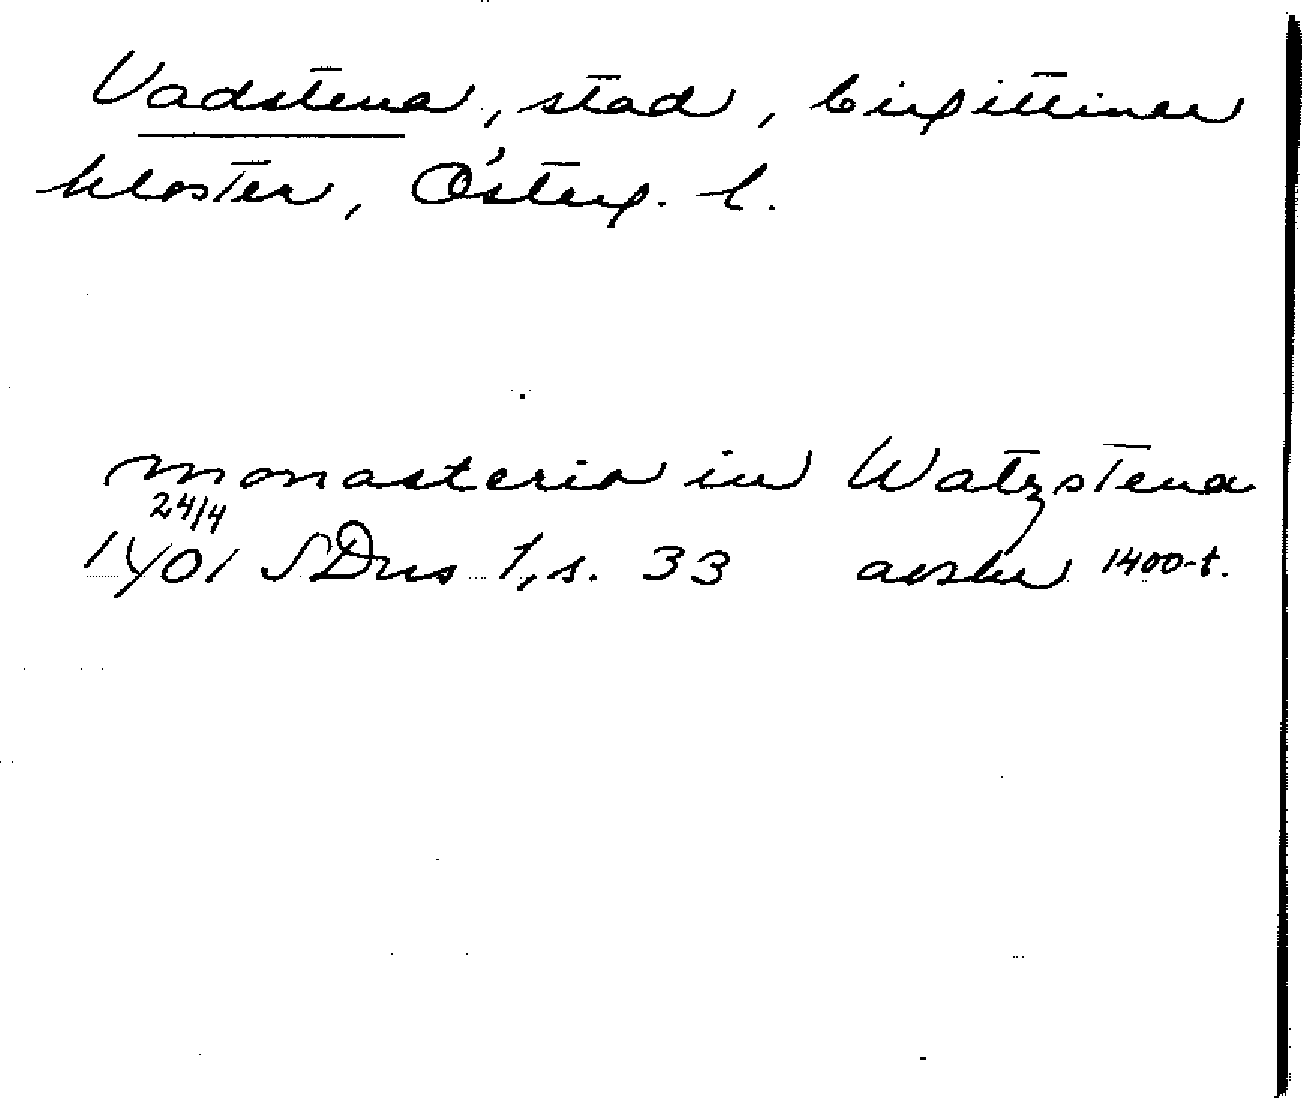 Vadstena, stad, birgittiner
kloster, Österg. l.
monasterio in Watzstena
24/4
1401 SDns 1, s. 33 avskr 1400-t.